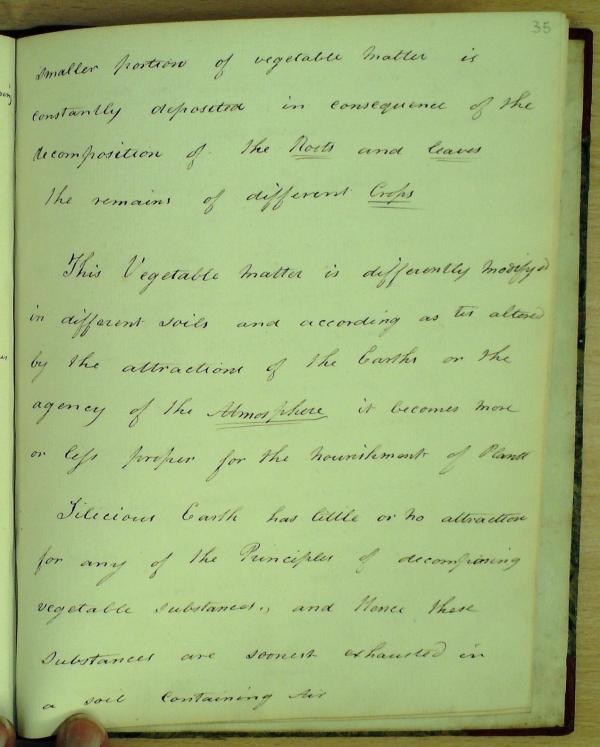 35
smaller portion of vegetable matter is
constantly deposited in consequence of the
decomposition of the Roots and leaves
the remains of different Crops
This Vegetable matter is differently modifyed
in different soils and according as tis altered
by the attractions of the Earths or the
agency of the Atmosphere it becomes more
or less proper for the nourishment of Plants
Silecious Earth has little or no attraction
for any of the Principles of decomposing
vegetable substances, and Hence these
substances are soonest exhausted in
a soil containing